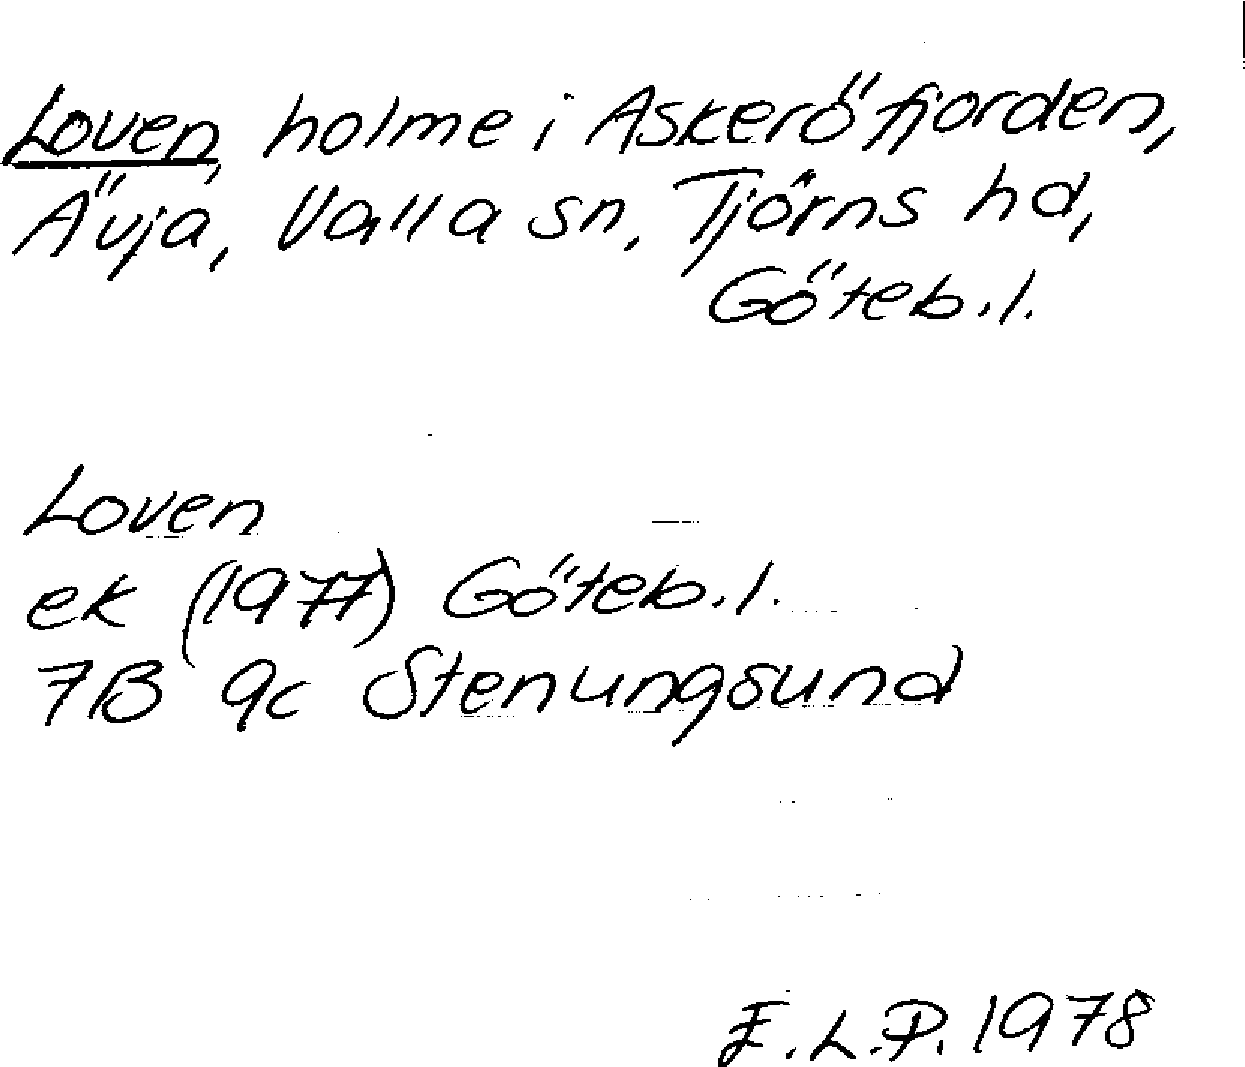 Loven, holme i Askeröfjorden,
Ävja, Valla sn, Tjörns hd,
Göteb.l.
Loven
ek (1977) Göteb.l.
7B 9c Stenungsund
E.L.P. 1978